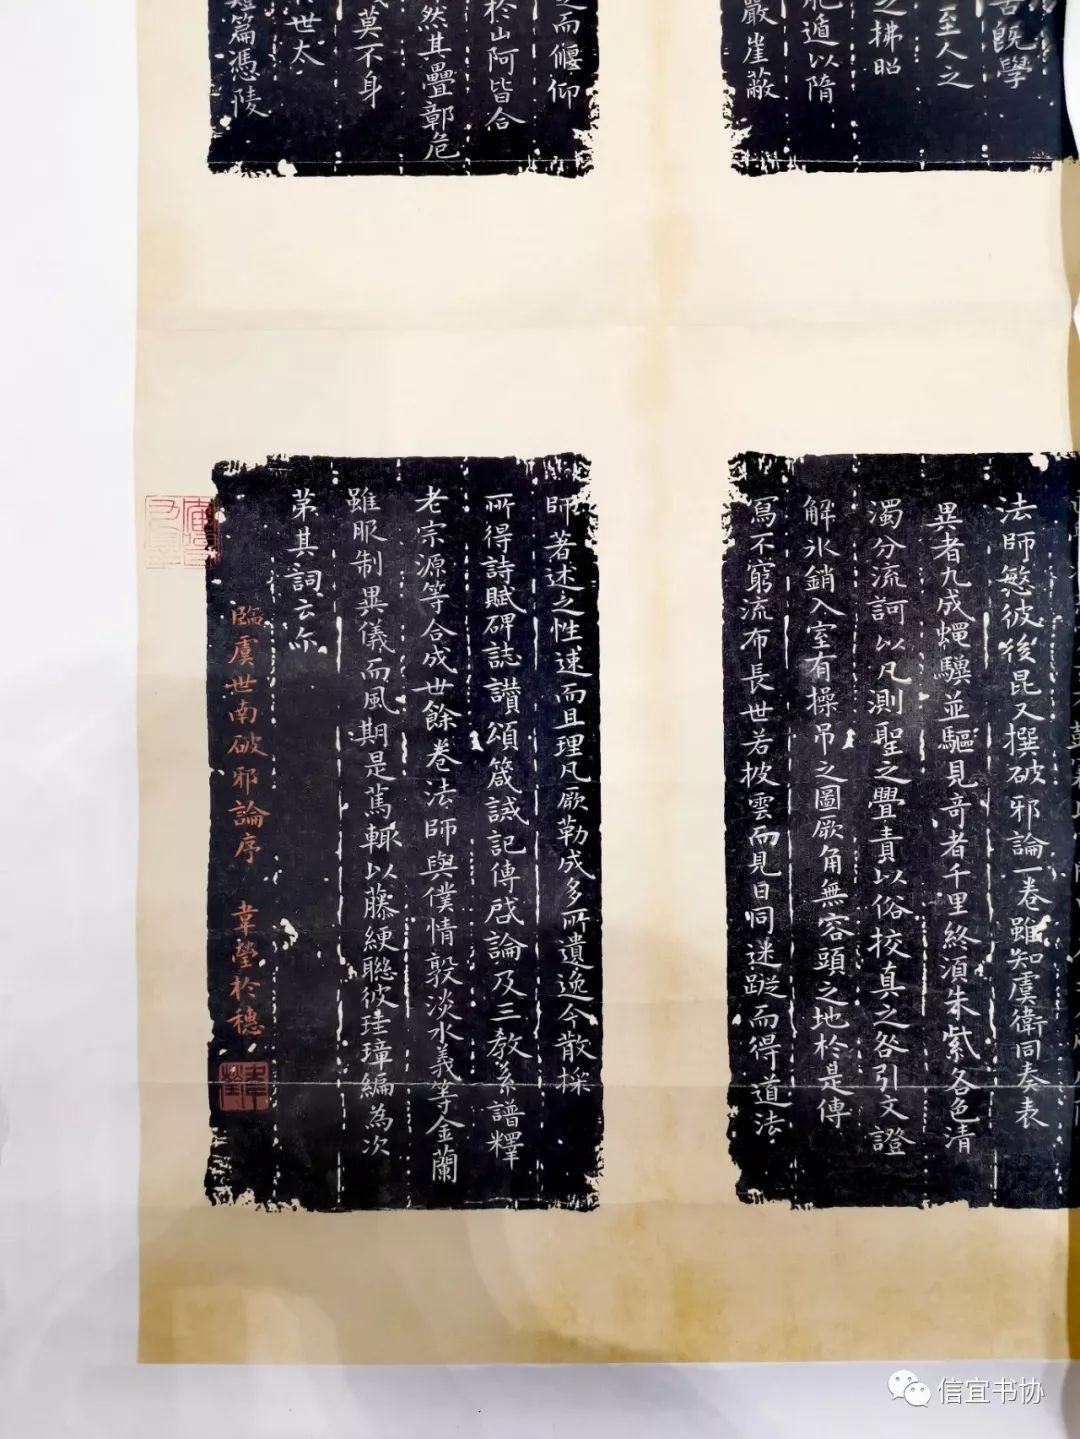 舌既學
至人之
之拂昭
能遁以隋
嚴崖蔽
之而偃仰
於山阿皆合
然其疊鄣危
莫不身
於世太
短篇憑陵
法師愍彼後昆又撰破邪論一卷雖知虞衛同奏表
異者九成蠅驥並驅見奇者千里終須朱紫各色清
濁分流訶以凡測聖之舋責以俗挍真之咎引文證
解氷銷入室有操吊之圖厥角無容頭之地於是傳
寫不窮流布長世若披雲而見日同迷蹤而得道法
師著述之性速而且理凡厥勒成多所遺逸今散採
所得詩賦碑誌讃頌箴誡記傳啟論及三教系譜釋
老宗源等合成世餘卷法師與僕情敦淡水義等金蘭
雖服制異儀而風期是篤輒以藤綆聯彼珪璋編為次
第其詞云尒
臨虞世南破邪論序 韋瑩於穗
信宜书协